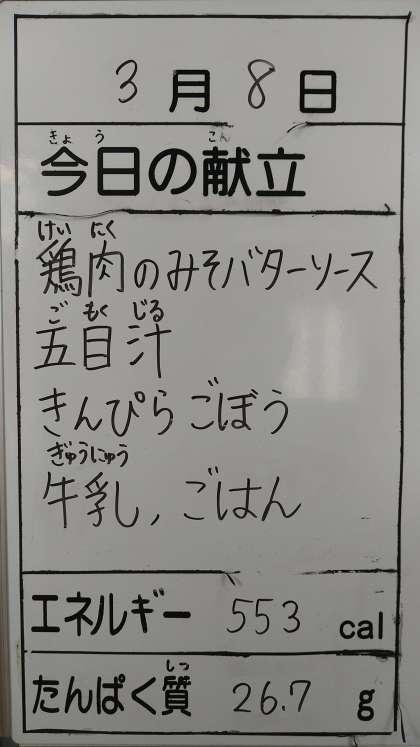 3月8日
きょう こん
今日の献立
けいにく
鶏肉のみそバターソース
ごもくじる
五目汁
きんぴらごぼう
ぎゅうにゅう
牛乳、ごはん
エネルギー 553 cal
しつ
たんぱく質 26.7 g